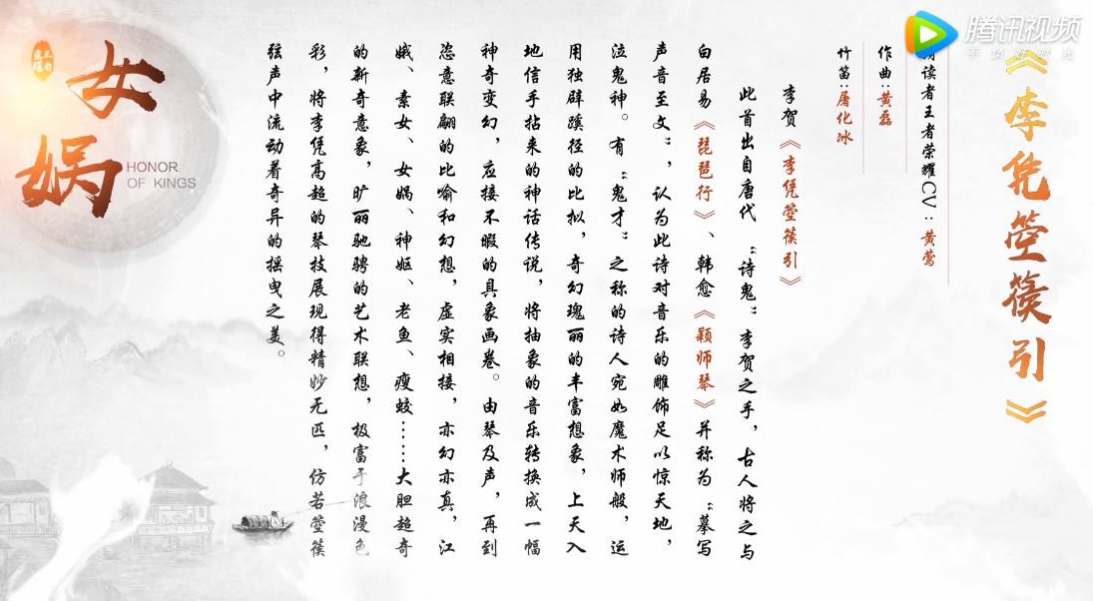 《李凭箜篌引》
朗读者王者荣耀CV：黄莺
作曲：黄磊
竹笛：屠化冰
李贺《李凭箜篌引》
此首出自唐代“诗鬼”李贺之手，古人将之与
白居易《琵琶行》、韩愈《颖师琴》并称为“摹写
声音至文”，认为此诗对音乐的雕饰足以惊天地，
泣鬼神。有“鬼才”之称的诗人宛如魔术师般，运
用独辟蹊径的比拟，奇幻瑰丽的丰富想象，上天入
地信手拈来的神话传说，将抽象的音乐转换成一幅
神奇变幻，应接不暇的具象画卷。由琴及声，再到
恣意联翩的比喻和幻想，虚实相接，亦幻亦真，江
娥、素女、女娲、神妪、老鱼、瘦蛟……大胆超奇
的新奇意象，旷丽驰骋的艺术联想，极富于浪漫色
彩，将李凭高超的琴技展现得精妙无匹，仿若箜篌
弦声中流动着奇异的摇曳之美。
女娲
王者荣耀
HONOR
OF KINGS
腾讯视频
不负好时光